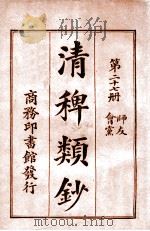 第二十七册
師友
會黨
清稗類鈔
商務印書館發行